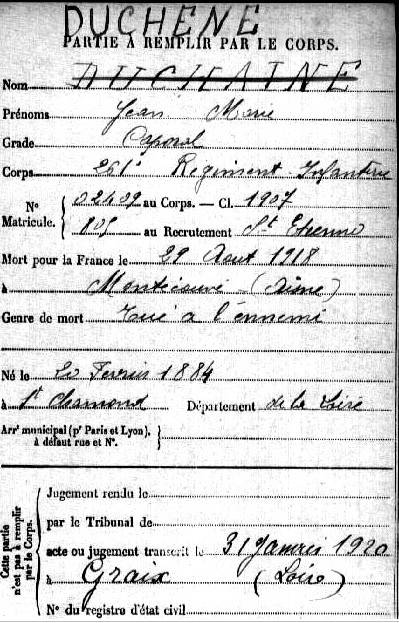 DUCHENE
PARTIE À REMPLIR PAR LE CORPS.
Nom DUCHAINE
Prénoms Jean Marie
Grade Caporal
Corps 261e Régiment Infanterie
N° Matricule. { 02409 au Corps. — Cl. 1907
809 au Recrutement St Etienne
Mort pour la France le 29 Aout 1918
à Montécouvé (Aisne)
Genre de mort Tué a l'ennemi
Né le 20 Fevrier 1884
à St Chamond Département de la Loire
Arr' municipal (p' Paris et Lyon),
à défaut rue et N°.
Cette partie n'est pas à remplir par le Corps.
Jugement rendu le
par le Tribunal de
acte ou jugement transcrit le 31 Janvier 1920
à Graix (Loire)
N° du registre d'état civil